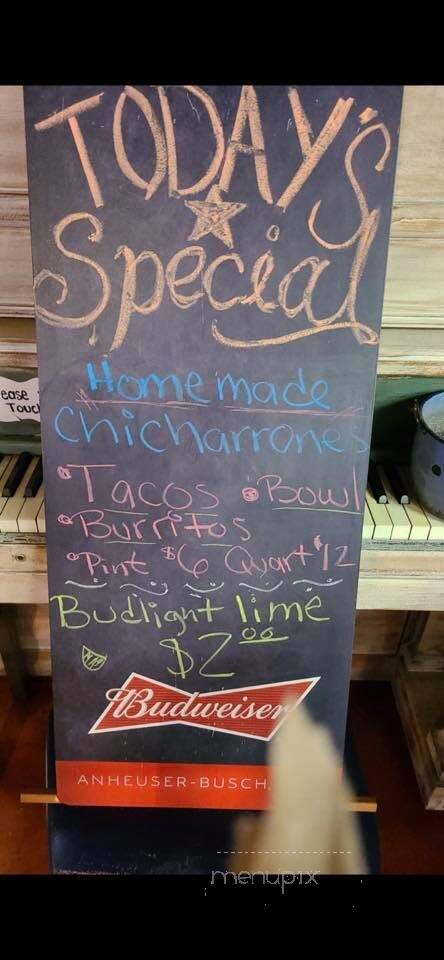 TODAY'S
Special
Homemade
Chicharrones
• Tacos • Bowl
• Burritos
• Pint $6 Quart $12
Budlight lime
$2.00
Budweiser
ANHEUSER-BUSCH
ease
Touch
menupix